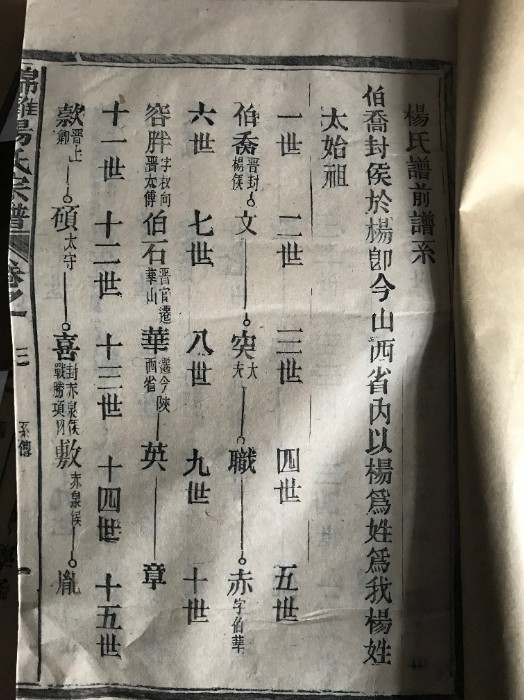 楊氏譜前譜系
伯喬封侯於楊卽今山西省內以楊爲姓爲我楊姓
太始祖
一世 二世 三世 四世 五世
伯喬 晋封楊侯 文 突 大夫 職 赤 字伯華
六世 七世 八世 九世 十世
容胖 字叔向晋太傅 伯石 晋官遷華山 華 遷今陝西省 英 章
十一世 十二世 十三世 十四世 十五世
款 晋上卿 碩 太守 喜 封赤泉侯戰勝項羽 敷 赤泉侯 胤
錦雞楊氏宗譜 卷之一 系傳